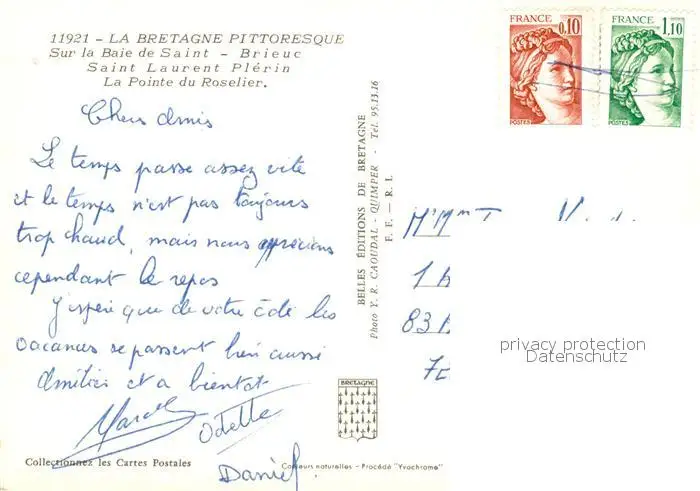 11921 - LA BRETAGNE PITTORESQUE
Sur la Baie de Saint - Brieuc
Saint Laurent Plérin
La Pointe du Roselier.
FRANCE
0,10
POSTES
FRANCE
1,10
POSTES
Chers Amis
Le temps passe assez vite
et le temps n'est pas toujours
trop chaud, mais nous apprécions
cependant le repos
J'espère que de votre côté les
vacances se passent bien aussi
Amitiés et a bientot
Marcel
Odette
Daniel
BELLES ÉDITIONS DE BRETAGNE
Photo Y. R. CAOUDAL - QUIMPER - Tel. 95.13.16
F. F. — R. I.
Mr Mme T
1
83
privacy protection
Datenschutz
BRETAGNE
Collectionnez les Cartes Postales
Couleurs naturelles - Procédé "Yvochrome"